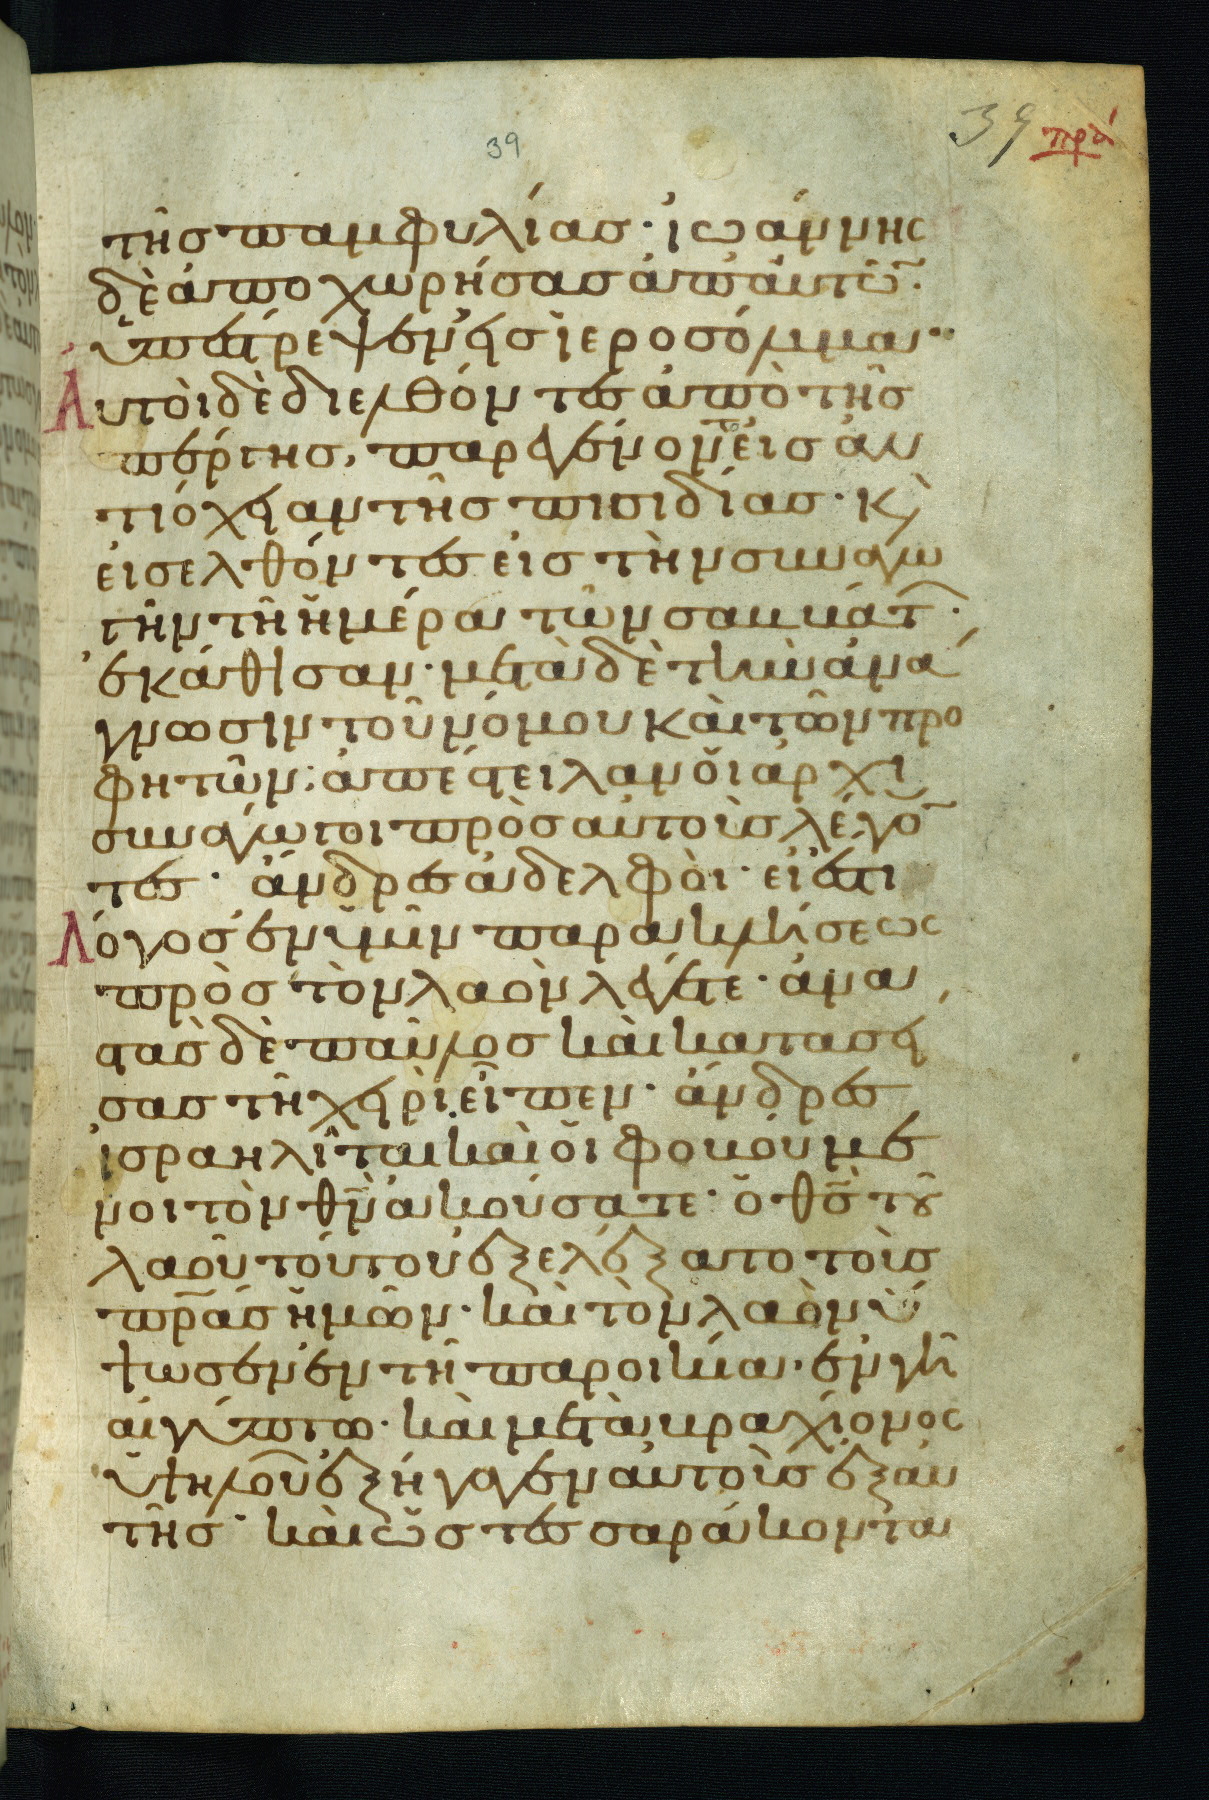 39
39 πρά
τῆσ παμφυλίασ · ἰωάννης
δὲ ἀποχωρήσασ ἀπ' ἀυτῶ ·
ὑπέστρεψεν ἐισ ἱεροσόλυμα ··
Ἀυτὸι δὲ διελθόντεσ ἀπὸ τῆσ
πέργησ, παρεγένοντ ἐισ ἀν
τιόχειαν τῆσ πισιδίασ · κὶ
ἐισελθόντεσ ἐισ τὴν συναγω
γὴν τῆ ἡμέρα τῶν σαββάτ ·
ἐκάθισαν · μετὰ δὲ τὴν ἀνά
γνωσιν τοῦ νόμου κὰι τῶν προ
φητῶν · ἀπέστειλαν ὁι ἀρχι
συνάγωγοι πρὸσ ἀυτοὺσ λέγο
τεσ · ἄνδρεσ ἀδελφὸι · εἰ ἔστι
Λόγοσ ἐν ὑμῖν παρακλήσεως
πρὸσ τὸν λαὸν λέγετε · ἀνα
στὰσ δὲ παῦλοσ κὰι κατασεί
σασ τῆ χειρὶ εἶπεν · ἄνδρεσ
ἰσραηλῖται κὰι ὁι φοβούμε
νοι τὸν θν ἀκούσατε · ὁ θσ τοῦ
λαοῦ τούτου ἐξελέξατο τοὺσ
πρασ ἡμῶν · κὰι τὸν λαὸν ὕ
ψωσεν ἐν τῆ παροικία · ἐν γῆ
αἰγύπτω · κὰι μετὰ βραχίονος
ὑψηλοῦ ἐξήγαγεν ἀυτοὺσ ἐξ ἀυ
τῆσ · κὰι ὡσ τεσσαράκοντα